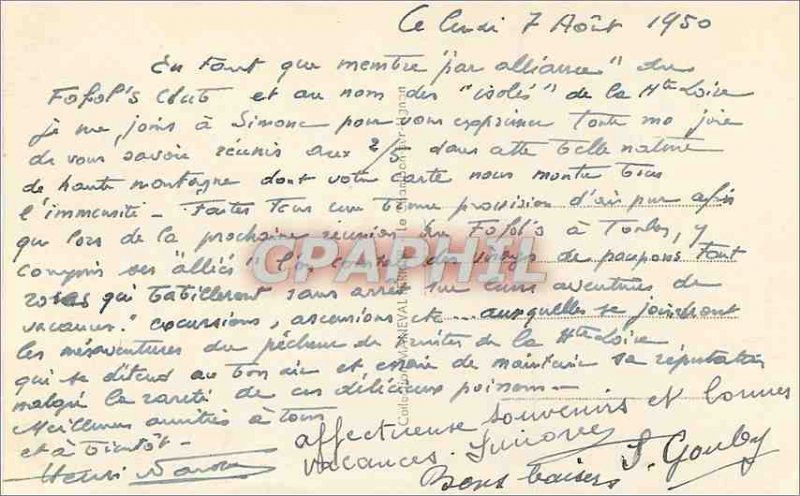 Ce lundi 7 Août 1950
En tant que membre "par alliance" du
Fofol's Club et au nom des "isolés" de la Hte Loire
je me joins à Simone pour vous exprimer toute ma joie
de vous savoir réunis aux 2/5 dans cette belle nature
de haute montagne dont votre carte nous montre tous
l'immensité - Faites tous une bonne provision d'air pur afin
que lors de la prochaine réunion du Fofol's à y
compris ses "alliés" l'on des visages de poupons tout
roses qui babilleront sans arrêt sur leurs aventures de
vacances." excursions, ascensions etc... auxquelles se joindront
les mésaventures du pêcheur de truites de la Hte Loire
qui se détend au bon air et essaie de maintenir sa réputation
malgré la rareté de ces délicieux poissons -
Meilleures amitiés à tous
et à bientôt -
Henri
affectueux souvenirs et bonnes
vacances. Simone
Bons baisers S. Gouby
Collection MANEVAL
Le Chambon-sur-Lignon
CPAPHIL